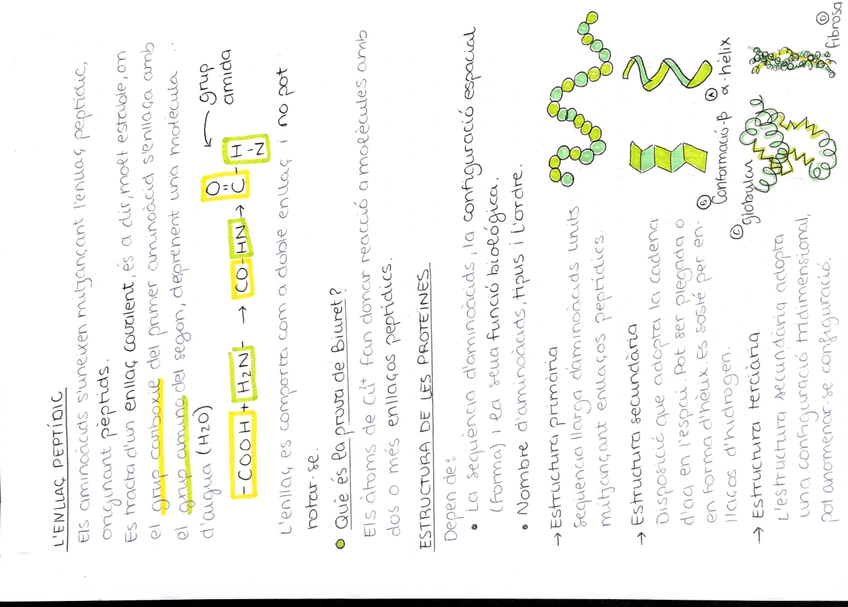 L'ENLLAÇ PEPTÍDIC
Els aminoàcids s'uneixen mitjançant l'enllaç peptídic,
originant pèptids.
Es tracta d'un enllaç covalent, és a dir, molt estable, on
el grup carboxie del primer aminoàcid s'enllaça amb
el grup amina del segon, deprenent una molècula
d'aigua (H2O)
-COOH + H2N- → CO-HN → O=C-H-N
grup
amida
L'enllaç es comporta com a doble enllaç i no pot
rotar-se.
Què és la prova de Biuret?
Els àtoms de Cu+ fan donar reacció a molècules amb
dos o més enllaços peptídics.
ESTRUCTURA DE LES PROTEÏNES
Depen de:
• La seqüència d'aminoàcids, la configuració espacial
(forma) i la seua funció biològica.
• Nombre d'aminoàcids, tipus i l'ordre.
→ Estructura primària
Seqüència llarga d'aminoàcids units
mitjançant enllaços peptídics.
→ Estructura secundària
Disposició que adopta la cadena
d'aa en l'espai. Pot ser plegada o
en forma d'hèlix. Es sosté per en-
llaços d'hidrogen.
B Conformació-β
A α-hèlix
→ Estructura terciària
L'estructura secundària adopta
una configuració tridimensional,
pot anomenar-se configuració.
C globular
D fibrosa